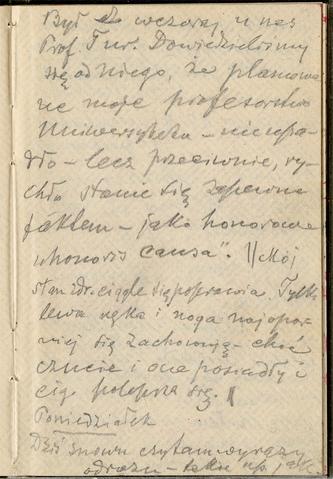 Był wczoraj u nas
Prof. Tur. Dowiedzieliśmy
się od Niego, że planowa
ne moje profesorstwo
Uniwersytetu – nie upa-
dło – lecz przeciwnie, ry-
chło stanie się zapewne
faktem – jako honorowe
„honoris causa". || Mój
stan zdr. ciągle się poprawia. Tylko
lewa ręka i noga najopor-
niej się zachowują – choć
czucie i one posiadły i
ciąg. polepsza się. ||
Poniedziałek
Dziś znowu czytam wyrazy
odrazu – takie np. jak: